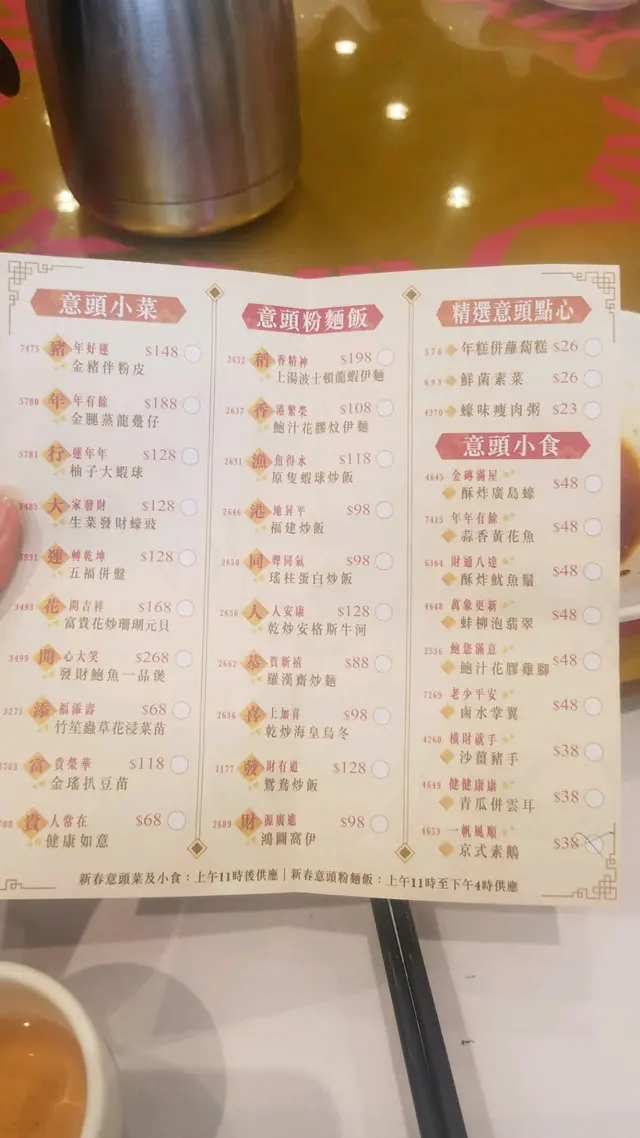 意頭小菜
7475 豬年好運 $148
金豬伴粉皮
5780 年年有餘 $188
金腿蒸龍躉仔
5781 行運年年 $128
柚子大蝦球
3485 大家發財 $128
生菜發財蠔豉
3931 運轉乾坤 $128
五福併盤
3493 花開吉祥 $168
富貴花炒珊瑚元貝
3499 開心大笑 $268
發財鮑魚一品煲
3271 添福添壽 $68
竹笙蟲草花浸菜苗
3763 富貴榮華 $118
金瑤扒豆苗
708 貴人常在 $68
健康如意
意頭粉麵飯
2632 稻香精神 $198
上湯波士頓龍蝦伊麵
2637 香港繁榮 $108
鮑汁花膠炆伊麵
2631 漁魚得水 $118
原隻蝦球炒飯
2646 港地昇平 $98
福建炒飯
2650 同聲同氣 $98
瑤柱蛋白炒飯
2656 人人安康 $128
乾炒安格斯牛河
2662 恭賀新禧 $88
羅漢齋炒麵
2636 喜上加喜 $98
乾炒海皇烏冬
1177 發財有道 $128
鴛鴦炒飯
2689 財源廣進 $98
鴻圖窩伊
精選意頭點心
576 年糕併蘿蔔糕 $26
693 鮮菌素菜 $26
4270 蠔味瘦肉粥 $23
意頭小食
4645 金磚滿屋
酥炸廣島蠔 $48
7415 年年有餘
蒜香黃花魚 $48
6364 財通八達
酥炸魷魚鬚 $48
4648 萬象更新
蚌柳泡翡翠 $48
2536 鮑您滿意
鮑汁花膠雞腳 $48
7269 老少平安
鹵水掌翼 $48
4260 橫財就手
沙薑豬手 $38
4649 健健康康
青瓜併雲耳 $38
4653 一帆風順
京式素鵝 $38
新春意頭菜及小食：上午11時後供應｜新春意頭粉麵飯：上午11時至下午4時供應